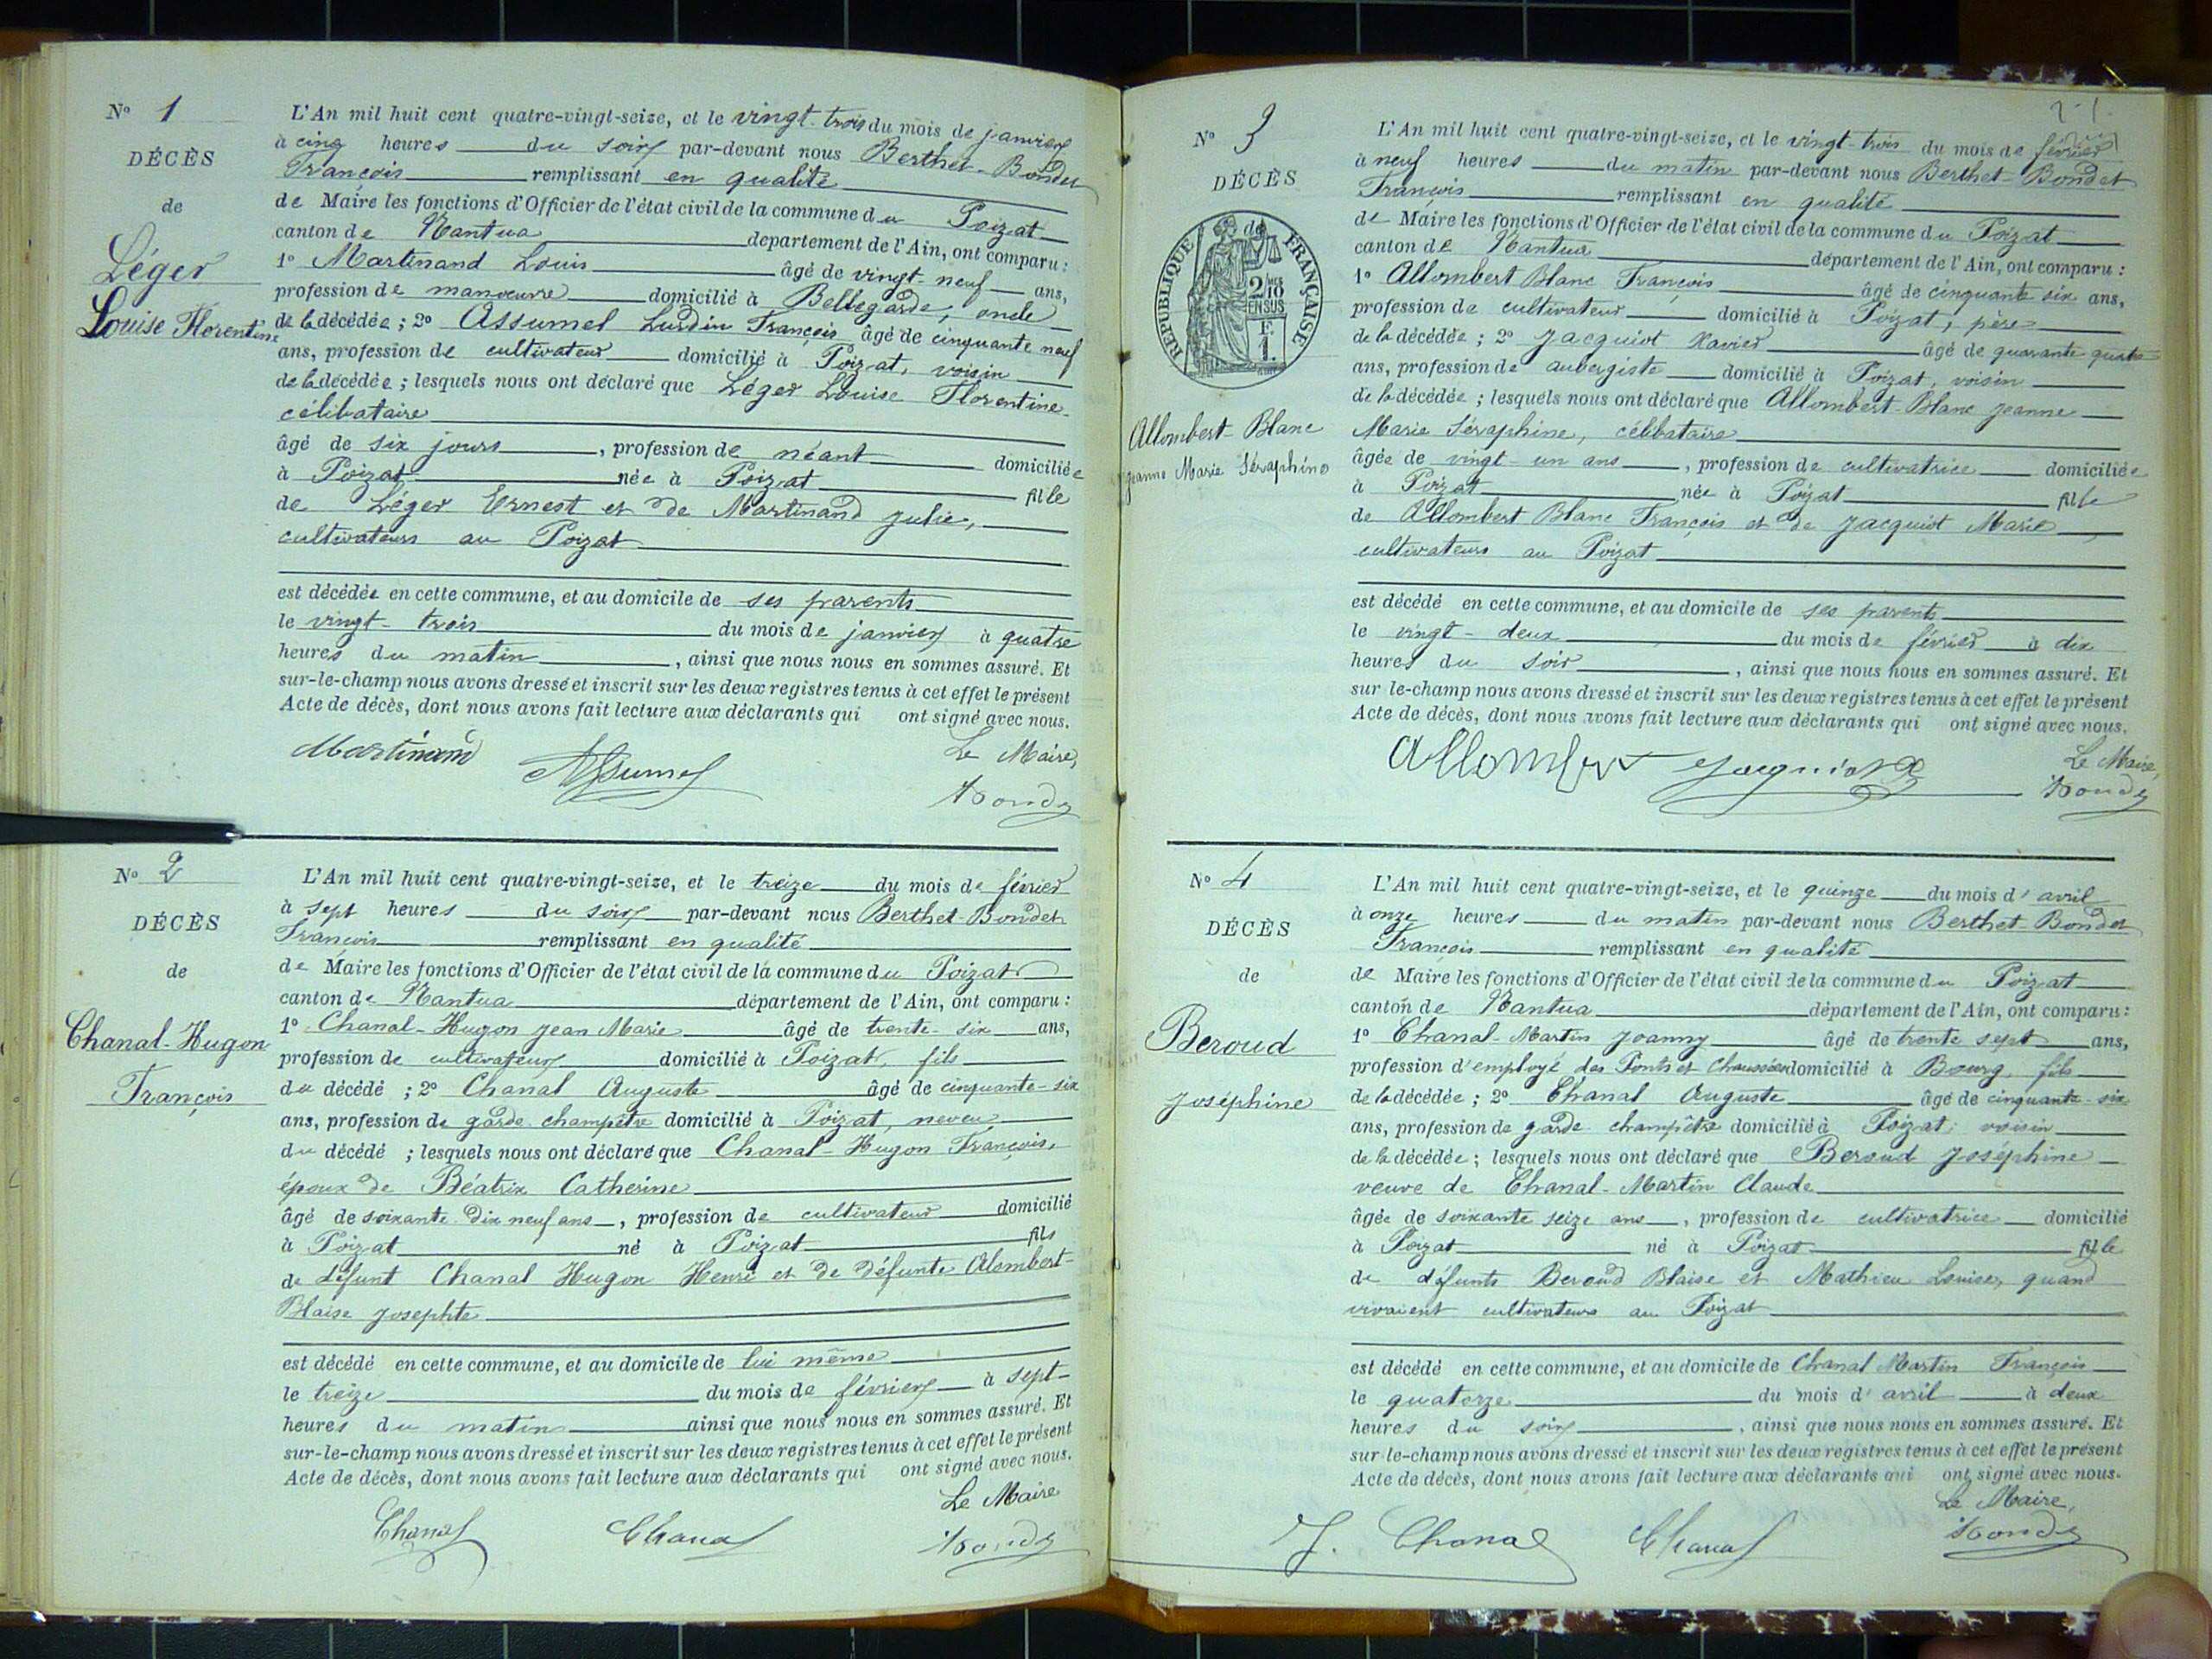 N° 1
DÉCÈS
de
Léger
Louise Florentine
L'An mil huit cent quatre-vingt-seize, et le vingt-trois du mois de janvier
à cinq heures du soir par-devant nous Berthet-Bondet
François remplissant en qualité
de Maire les fonctions d'Officier de l'état civil de la commune du Poizat
canton de Nantua département de l'Ain, ont comparu :
1° Martinand Louis âgé de vingt-neuf ans,
profession de manœuvre domicilié à Bellegarde, oncle
de la décédée ; 2° Assumel Lurdin François âgé de cinquante neuf
ans, profession de cultivateur domicilié à Poizat, voisin
de la décédée ; lesquels nous ont déclaré que Léger Louise Florentine
célibataire
âgé de six jours, profession de néant domiciliée
à Poizat née à Poizat fille
de Léger Ernest et de Martinand Julie,
cultivateurs au Poizat
est décédée en cette commune, et au domicile de ses parents
le vingt-trois du mois de janvier à quatre
heures du matin, ainsi que nous nous en sommes assuré. Et
sur-le-champ nous avons dressé et inscrit sur les deux registres tenus à cet effet le présent
Acte de décès, dont nous avons fait lecture aux déclarants qui ont signé avec nous.
Le Maire,
Martinand Assumel
Bondet
N° 2
DÉCÈS
de
Chanal-Hugon
François
L'An mil huit cent quatre-vingt-seize, et le treize du mois de février
à sept heures du soir par-devant nous Berthet-Bondet
François remplissant en qualité
de Maire les fonctions d'Officier de l'état civil de la commune du Poizat
canton de Nantua département de l'Ain, ont comparu :
1° Chanal-Hugon Jean Marie âgé de trente-six ans,
profession de cultivateur domicilié à Poizat, fils
du décédé ; 2° Chanal Auguste âgé de cinquante-six
ans, profession de garde champêtre domicilié à Poizat, neveu
du décédé ; lesquels nous ont déclaré que Chanal-Hugon François,
époux de Béatrix Catherine
âgé de soixante dix neuf ans, profession de cultivateur domicilié
à Poizat né à Poizat fils
de défunt Chanal Hugon Henri et de défunte Alombert-
Blaise Josephte
est décédé en cette commune, et au domicile de lui même
le treize du mois de février à sept
heures du matin ainsi que nous nous en sommes assuré. Et
sur-le-champ nous avons dressé et inscrit sur les deux registres tenus à cet effet le présent
Acte de décès, dont nous avons fait lecture aux déclarants qui ont signé avec nous.
Le Maire
Chanal Chanal Bondet
N° 3
DÉCÈS
de
RÉPUBLIQUE FRANÇAISE
2/10 EN SUS
Allombert-Blanc
Jeanne Marie Séraphine
L'An mil huit cent quatre-vingt-seize, et le vingt-trois du mois de février
à neuf heures du matin par-devant nous Berthet-Bondet
François remplissant en qualité
de Maire les fonctions d'Officier de l'état civil de la commune du Poizat
canton de Nantua département de l'Ain, ont comparu :
1° Allombert Blanc François âgé de cinquante six ans,
profession de cultivateur domicilié à Poizat, père
de la décédée ; 2° Jacquiot Xavier âgé de quarante quatre
ans, profession de aubergiste domicilié à Poizat, voisin
de la décédée ; lesquels nous ont déclaré que Allombert-Blanc Jeanne
Marie Séraphine, célibataire
âgée de vingt-un ans, profession de cultivatrice domiciliée
à Poizat née à Poizat fille
de Allombert Blanc François et de Jacquiot Marie,
cultivateurs au Poizat
est décédé en cette commune, et au domicile de ses parents
le vingt-deux du mois de février à dix
heures du soir, ainsi que nous nous en sommes assuré. Et
sur le-champ nous avons dressé et inscrit sur les deux registres tenus à cet effet le présent
Acte de décès, dont nous avons fait lecture aux déclarants qui ont signé avec nous.
Le Maire,
Allombert Jacquiot Bondet
N° 4
DÉCÈS
de
Beroud
Joséphine
L'An mil huit cent quatre-vingt-seize, et le quinze du mois d'avril
à onze heures du matin par-devant nous Berthet-Bondet
François remplissant en qualité
de Maire les fonctions d'Officier de l'état civil de la commune du Poizat
canton de Nantua département de l'Ain, ont comparu :
1° Chanal-Martin Joanny âgé de trente sept ans,
profession d'employé des Ponts et Chaussées domicilié à Bourg, fils
de la décédée ; 2° Chanal Auguste âgé de cinquante-six
ans, profession de garde champêtre domicilié à Poizat, voisin
de la décédée ; lesquels nous ont déclaré que Beroud Joséphine
veuve de Chanal-Martin Claude
âgée de soixante seize ans, profession de cultivatrice domicilié
à Poizat né à Poizat fille
de défunts Beroud Blaise et Mathieu Louise, quand
vivaient cultivateurs au Poizat
est décédé en cette commune, et au domicile de Chanal Martin François
le quatorze du mois d'avril à deux
heures du soir, ainsi que nous nous en sommes assuré. Et
sur-le-champ nous avons dressé et inscrit sur les deux registres tenus à cet effet le présent
Acte de décès, dont nous avons fait lecture aux déclarants qui ont signé avec nous.
Le Maire,
J. Chanal Chanal Bondet